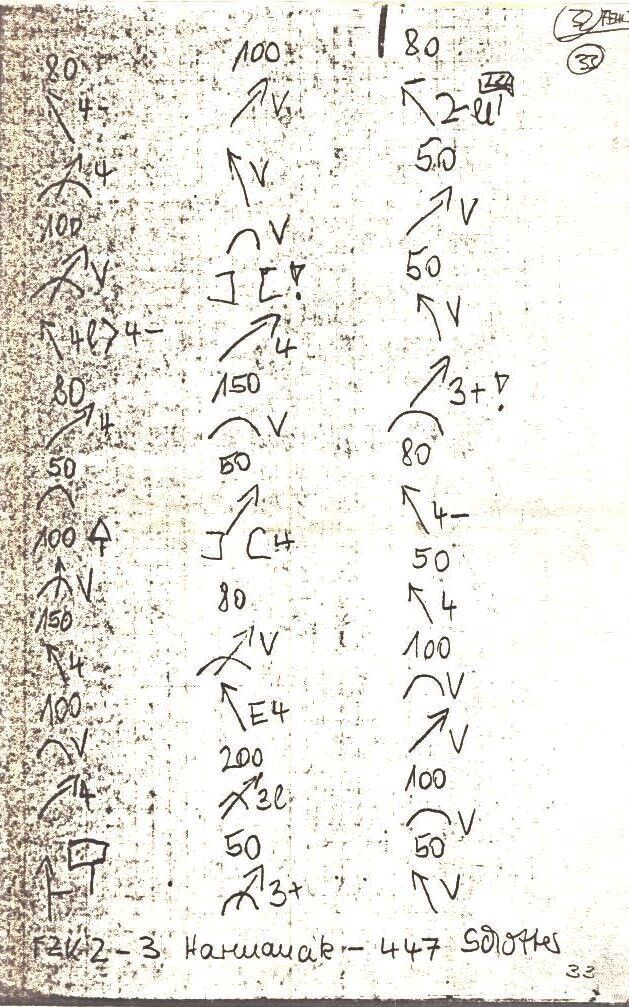 32 FZK
33
80
4-
4
100
V
4l>4-
80
4
50
100
V
150
4
100
V
4
100
V
V
V
] [!
4
150
V
50
] [4
80
V
E4
200
3l
50
3+
80
2-
50
V
50
V
3+!
80
4-
50
4
100
V
V
100
V
50
V
FZK 2-3 – 447 Schotter
33